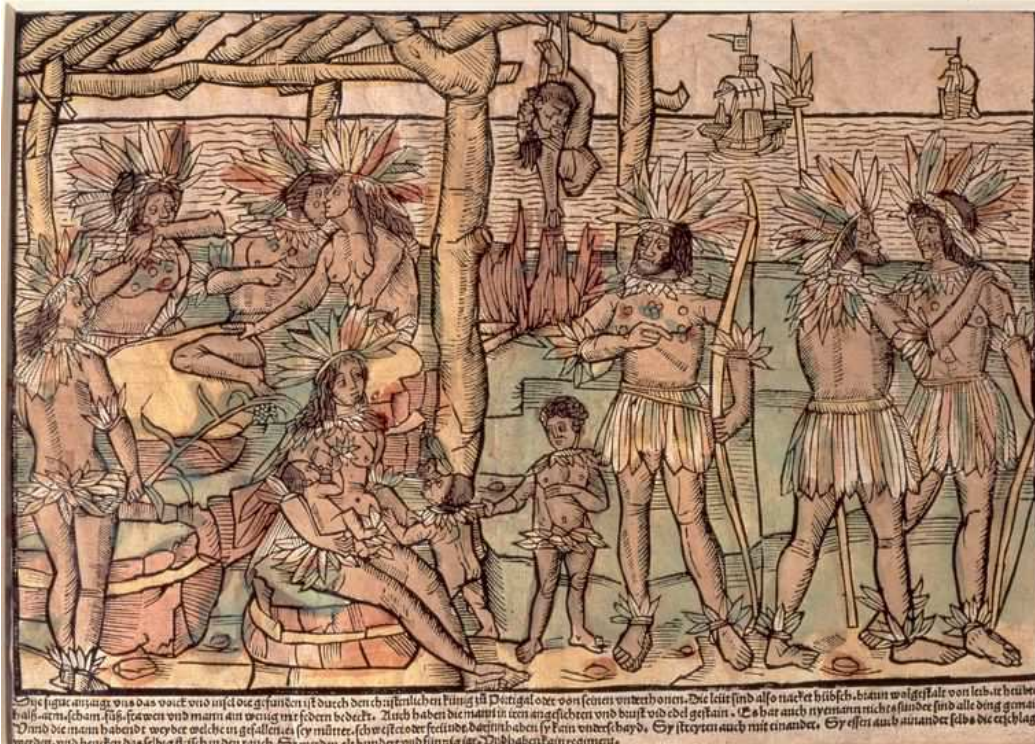 Dise figur anzaigt uns das volck und insel die gefunden ist durch den christenlichen künig zů Portigal oder von seinen underthonen. Die leüt sind also nacket hübsch. braun wolgestalt von leib. ir heübter
halß. arm. scham. füß. frawen und mann ain wenig mit federn bedeckt. Auch haben die mann in iren angesichten und brust vil edel gestain. Es hat auch nyemann nichts sunder sind alle ding gemain
Unnd die mann habendt weyber welche in gefallen. es sey mütter, schwester oder freündt. darjnn haben sy kain underschayd. Sy streyten auch mit einander. Sy essen auch ainander selbs die erschlagen
werden. und hencken das selbig fleisch in den rauch. Sy werden alt hundert und fünffzig iar. Und haben kain regiment.